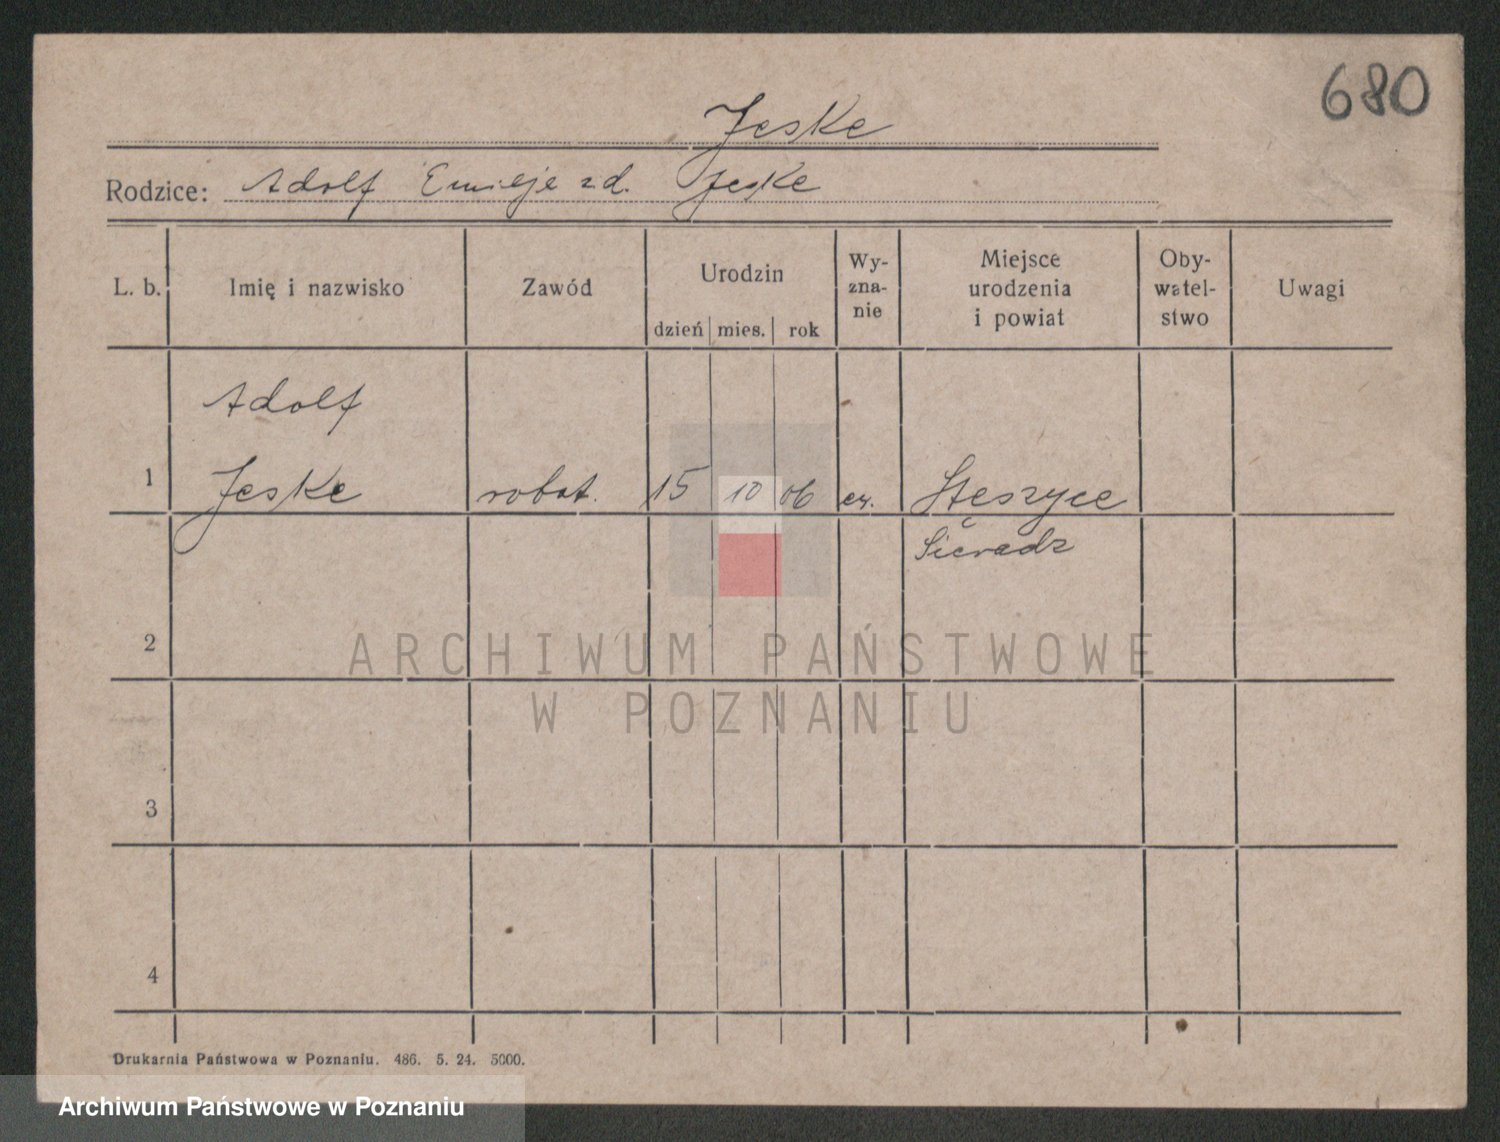 680
Jeske
Rodzice: Adolf Emilje zd. Jeske
L. b. Imię i nazwisko Zawód Urodzin dzień mies. rok Wy-zna-nie Miejsce urodzenia i powiat Oby-watel-stwo Uwagi
Adolf
1 Jeske robot. 15 10 06 ew. Stęszyce
Sieradz
2
ARCHIWUM PAŃSTWOWE
W POZNANIU
3
4
Drukarnia Państwowa w Poznaniu. 486. 5. 24. 5000.
Archiwum Państwowe w Poznaniu